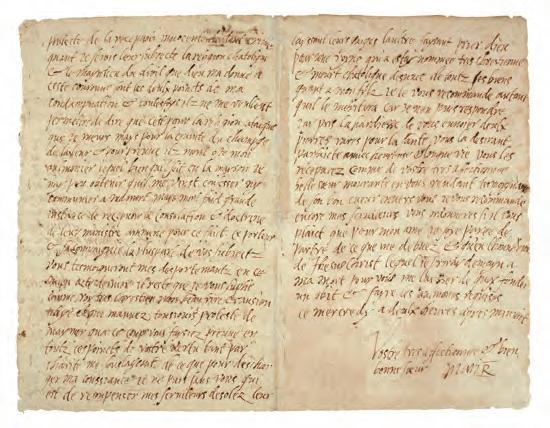 proteste de la recepvoir innocente de tout crime
quant je serois leur subjecte la religion chatolique
& le mayntien du droit que dieu m'a donne a
ceste couronne sont les deulx points de ma
condampnation & toutesfoy ilz ne me veullent
permettre de dire que cest pour la religion catolique
que je meurs mays pour la crainte du champge
de la leur & pour preuve ilz m'ont oste mon
aulmonier lequel bien quil soit en la mayson je
n'ay peu obtenir quil me vinst confesser ny
communier a ma mort mays m'ont faict grande
instance de recepvoir la consolation & doctrine
de leur ministre ammene pour ce faict ce porteur
& sa compaignie la pluspart de vos subjectz
vous tesmoigneront mes desportemantz en ce
mien acte dernier il reste que je vous suplie
comme roy tres chrestien mon beau frere & ansien
allye & qui m'avez tousjours proteste de
m'aymer qua ce coup vous faysiez preuve en
toutz ces points de vostre vertu tant par
charite me soulageant de ce que pour deschar
ger ma conscience je ne puis sans vous qui
est de recompenser mes serviteurs desolez leur
laysant leurs gaiges laultre faysant prier dieu
pour une royne qui a estay nommee tres chrestienne
& meurt chatolique desnuee de toutz ses biens
quant a mon fylz je le vous recommande autant
quil le meritera car je n'en puis respondre
Jay pris la hardiesse de vous envoier deulx
pierres rares pour la sante vous la desirant
parfaicte avec heureuse & longue vie vous les
recepvrez comme de vostre tres affectionnee
belle soeur mourante en vous rendant tesmoygnage
de son bon cueur envers vous je vous recommande
encore mes serviteurs vous ordonneres si il vous
plaict que pour mon ame je soye payee de
partye de ce que me debvez & qu'en l'honneur
de Jhesus Christ lequel je priray demayn a
ma mort pour vous me laysser de quoy fonder
un obit & fayre les aumosnes requises
ce mercredy a deulx heures apres minuit
Vostre tres affectionnee & bien
bonne soeur MARI R